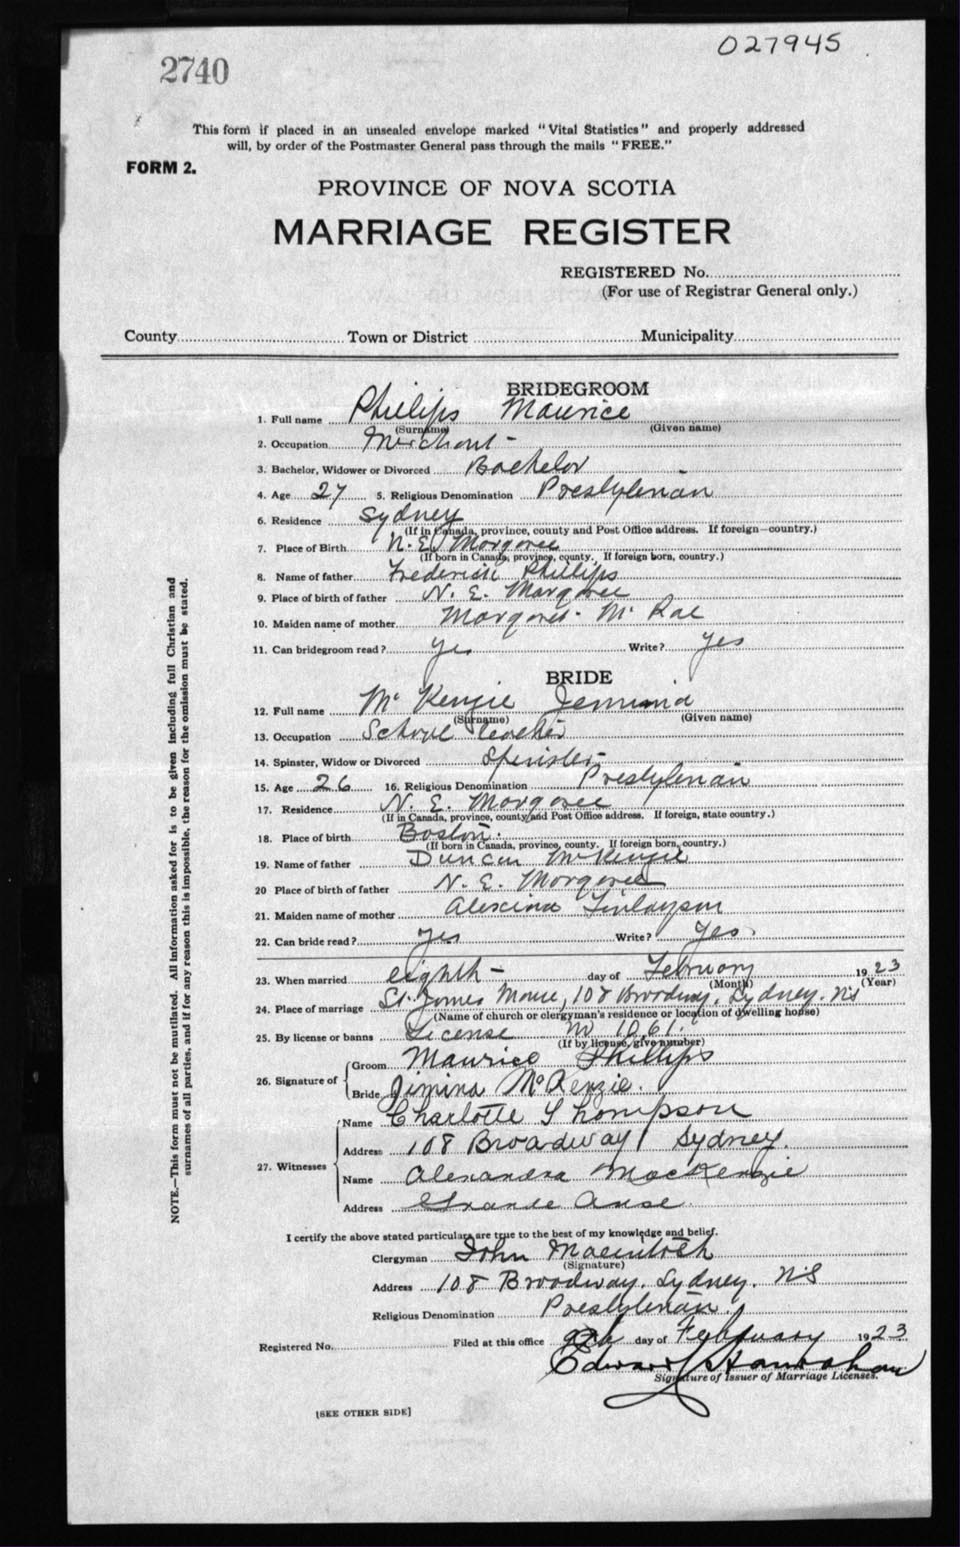 027945
2740
This form if placed in an unsealed envelope marked "Vital Statistics" and properly addressed
will, by order of the Postmaster General pass through the mails "FREE."
FORM 2.
PROVINCE OF NOVA SCOTIA
MARRIAGE REGISTER
REGISTERED No.
(For use of Registrar General only.)
County Town or District Municipality
BRIDEGROOM
1. Full name Phillips Maurice
(Surname) (Given name)
2. Occupation Merchant -
3. Bachelor, Widower or Divorced Bachelor
4. Age 27 5. Religious Denomination Presbyterian
6. Residence Sydney
(If in Canada, province, county and Post Office address. If foreign—country.)
7. Place of Birth N. E. Margaree
(If born in Canada, province, county. If foreign born, country.)
8. Name of father Frederick Phillips
9. Place of birth of father N. E. Margaree
10. Maiden name of mother Margaret McRae
11. Can bridegroom read? yes Write? yes
BRIDE
12. Full name McKenzie Jemima
(Surname) (Given name)
13. Occupation School teacher
14. Spinster, Widow or Divorced Spinster
15. Age 26 16. Religious Denomination Presbyterian
17. Residence N. E. Margaree
(If in Canada, province, county and Post Office address. If foreign, state country.)
18. Place of birth Boston.
(If born in Canada, province, county. If foreign born, country.)
19. Name of father Duncan McKenzie
20 Place of birth of father N. E. Margaree
21. Maiden name of mother Alexina Finlayson
22. Can bride read? yes Write? yes.
23. When married eighth - day of February 1923
(Month) (Year)
24. Place of marriage St. James Manse, 108 Broadway, Sydney. NS
(Name of church or clergyman's residence or location of dwelling house)
25. By license or banns License No 1061.
(If by license, give number)
26. Signature of
Groom Maurice Phillips
Bride Jimina McKenzie.
27. Witnesses
Name Charlotte Thompson
Address 108 Broadway Sydney.
Name Alexandra MacKenzie
Address Grande Anse
I certify the above stated particulars are true to the best of my knowledge and belief.
Clergyman John Macintosh
(Signature)
Address 108 Broadway, Sydney. NS
Religious Denomination Presbyterian
Registered No. Filed at this office 9th day of February 1923
Edward J Hanrahan
Signature of Issuer of Marriage Licenses.
[SEE OTHER SIDE]
NOTE.—This form must not be mutilated. All information asked for is to be given including full Christian and
surnames of all parties, and if for any reason this is impossible, the reason for the omission must be stated.